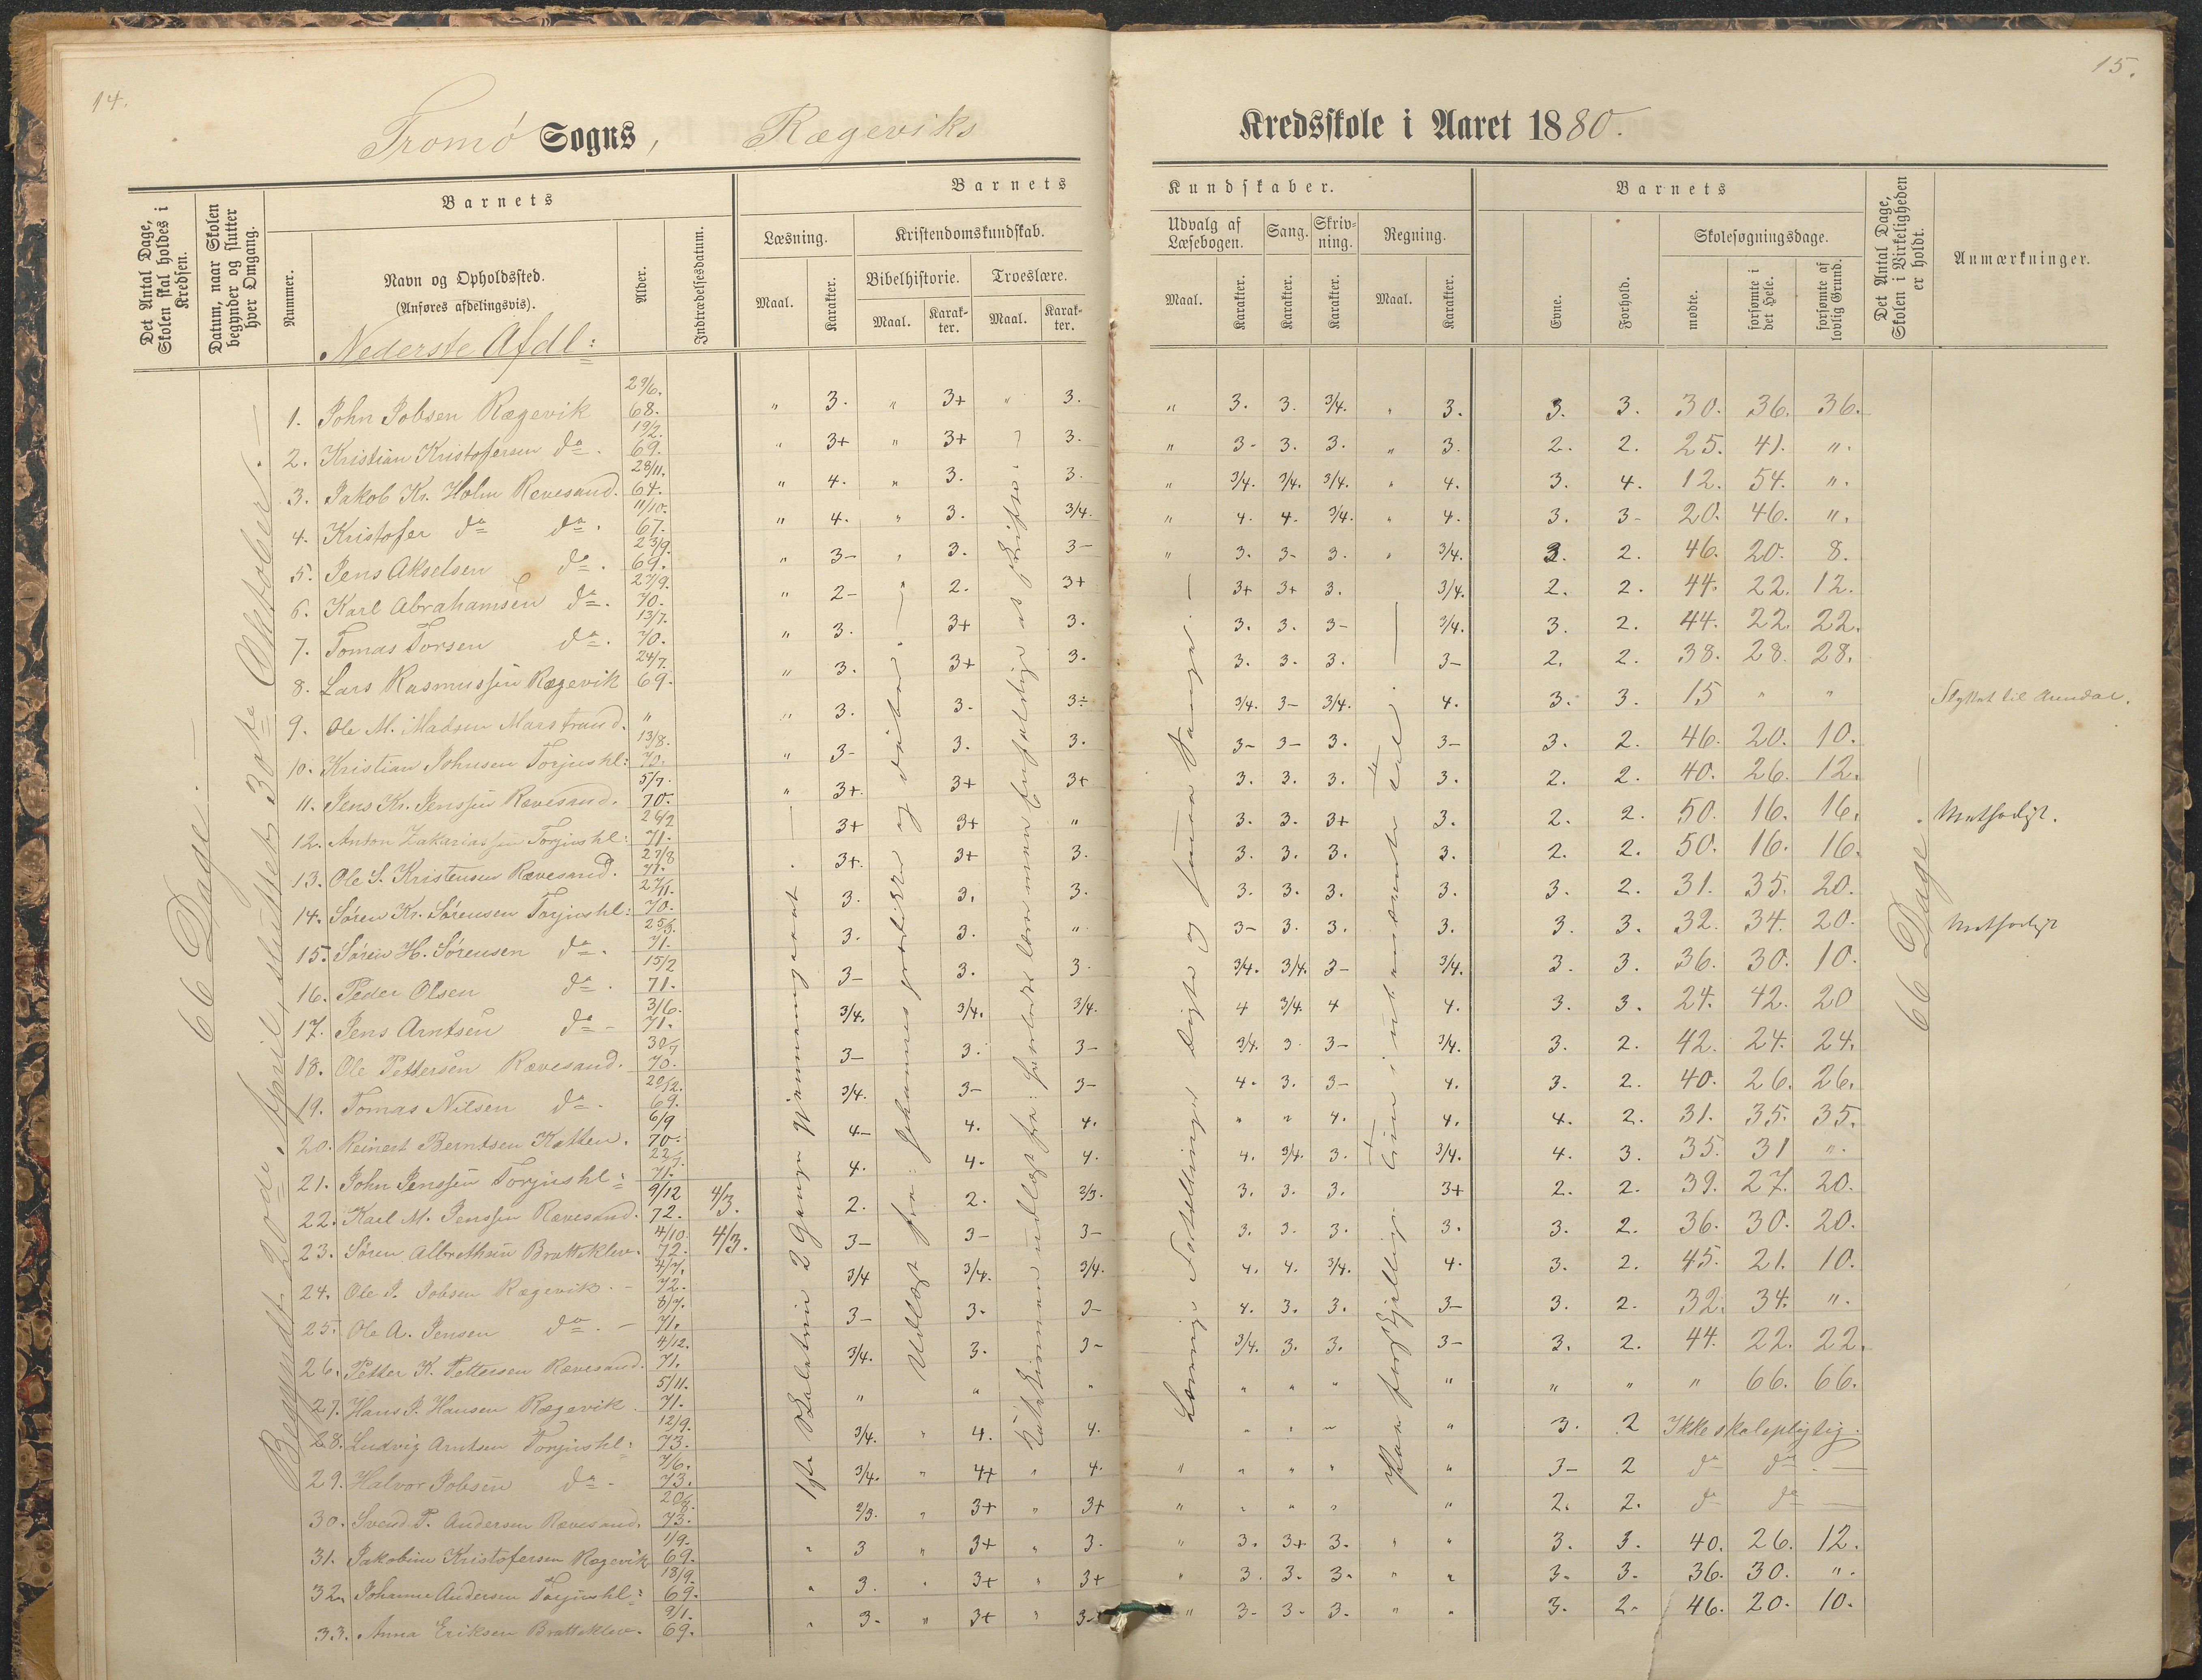 14.
15.
Tromø Sogns, Rægeviks
Kredsskole i Aaret 1880.
Det Antal Dage, Skolen skal holdes i Kredsen.
Datum, naar Skolen begynder og slutter hver Omgang.
Nummer.
Barnets
Navn og Opholdssted.
(Anføres afdelingsvis).
Alder.
Indtrædelsesdatum.
Barnets Kundskaber.
Læsning.
Maal.
Karakter.
Kristendomskundskab.
Bibelhistorie.
Maal.
Karakter.
Troeslære.
Maal.
Karakter.
Udvalg af Læsebogen.
Maal.
Karakter.
Sang.
Karakter.
Skrivning.
Karakter.
Regning.
Maal.
Karakter.
Barnets
Evne.
Forhold.
Skolesøgningsdage.
mødte.
forsømte i det Hele.
forsømte af lovlig Grund.
Det Antal Dage, Skolen i Virkeligheden er holdt.
Anmærkninger.
Nederste Afdl:
66 Dage.
Begyndt 20de April, sluttet 30te Oktober.
66 Dage
1. John Jobsen Rægevik 29/6. 68. " 3. " 3+ " 3. " 3. 3. 3/4. " 3. 3. 3. 30. 36. 36.
2. Kristian Kristofersen do. 19/2. 69. " 3+ " 3+ 3. " 3- 3. 3. " 3. 2. 2. 25. 41. ".
3. Jakob Kr. Holm Revesand. 28/11. 64. " 4. " 3. 3. " 3/4. 3/4. 3/4. " 4. 3. 4. 12. 54. ".
4. Kristofer do do. 11/10. 67. " 4. " 3. 3/4. " 4. 4. 3/4. " 4. 3. 3- 20. 46. ".
5. Jens Akselsen do. 23/9. 69. " 3- " 3. 3- " 3. 3- 3. " 3/4. 3. 2. 46. 20. 8.
6. Karl Abrahamsen do. 27/9. 70. " 2- " 2. 3+ 3+ 3+ 3. 3/4. 2. 2. 44. 22. 12.
7. Tomas Torsen do. 13/7. 70. " 3. 3+ 3. 3. 3. 3- 3/4. 3. 2. 44. 22. 22.
8. Lars Rasmussen Rægevik 24/7. 69. " 3. 3+ 3. 3. 3. 3. 3- 2. 2. 38. 28. 28.
9. Ole M. Madsen Marstrand. " " 3. 3. 3÷ 3/4. 3- 3/4. 4. 3. 3. 15 " " Flyttet til Arendal.
10. Kristian Johnsen Torjushl: 13/8. 70. " 3- 3. 3. 3- 3- 3. 3- 3. 2. 46. 20. 10.
11. Jens Kr. Jenssen Rævesand. 5/7. 70. " 3+. 3+ 3+ 3. 3. 3. 3. 2. 2. 40. 26. 12.
12. Anton Zakariassen Torjushl: 26/2 71. 3+ 3+ " 3. 3. 3+ 3. 2. 2. 50. 16. 16. Methodist.
13. Ole S. Kristensen Rævesand. 27/8 71. 3+. 3+ 3. 3. 3. 3. 3. 2. 2. 50. 16. 16.
14. Søren Kr. Sørensen Torjushl: 27/11. 70. 3. 3. 3. 3. 3. 3. 3. 3. 2. 31. 35. 20.
15. Søren H. Sørensen do. 25/3. 71. 3. 3. " 3- 3. 3. 3. 3. 3. 32. 34. 20. Methodist
16. Peder Olsen do. 15/2 71. 3- 3. 3. 3/4. 3/4. 3- 3/4. 3. 3. 36. 30. 10.
17. Jens Arntsen do - 3/6. 71. 3/4. 3/4. 3/4. 4 3/4. 4 4. 3. 3. 24. 42. 20
18. Ole Pettersen Rævesand. 30/7 70. 3- 3. 3- 3/4. 3 3- 3/4. 3. 2. 42. 24. 24.
19. Tomas Nilsen do. 20/12. 69. 3/4. 3- 3- 4. 3. 3- 4. 3. 2. 40. 26. 26.
20. Reinert Berntsen Katten. 6/9 70. 4- 4. 4. " " 4. 4. 4. 2. 31. 35. 35.
21. John Jenssen Torjushl: 22/7. 71. 4. 4. 4. 4. 3/4. 3. 3/4. 4. 3. 35. 31 ".
22. Karl M. Jenssen Rævesand. 9/12 72. 4/3. 2. 2. 2/3. 3. 3. 3. 3+ 2. 2. 39. 27. 20.
23. Søren Albrethsen Bratteklev. 4/10. 72. 4/3. 3- 3- 3- 3. 3. 3. 3. 3. 2. 36. 30. 20.
24. Ole J. Jobsen Rægevik. - 4/7. 72. 3/4 3/4. 3/4. 4. 4. 3/4. 4. 3. 2. 45. 21. 10.
25. Ole A. Jensen do. - 8/7. 71. 3- 3. 3- 4. 3. 3. 3- 3. 2. 32. 34. ".
26. Petter K. Pettersen Rævesand. 4/12. 71. 3/4. 3. 3- 3/4. 3. 3. 3- 3. 2. 44. 22. 22.
27. Hans J. Hansen Rægevik. 5/11. 71. " " " " " " " " " " 66. 66.
28. Ludvig Arntsen Torjushl: 12/9. 73. 3/4. " 4. 4. " " " " 3. 2 Ikke skolepligtig.
29. Halvor Jobsen do - 7/6. 73. 3/4. " 4+ " 4. " " " " " 3- 2 do do.
30. Svend T. Andersen Rævesand. 20/8. 73. 2/3. " 3+ " 3+ " " " " " 2. 2. do do
31. Jakobine Kristofersen Rægevik 1/9. 69. " 3 " 3+ " 3. " 3. 3+ 3. " " 3. 3. 40. 26. 12.
32. Johanne Andersen Torjushl: 18/9. 69. " 3. " 3+ " 3+ " 3. 3. 3. " " 3. 3. 36. 30. ".
33. Anna Eriksen Bratteklev. 9/1. 69. " 3. " 3+ " 3- " 3- 3- 3. " " 3. 2. 46. 20. 10.